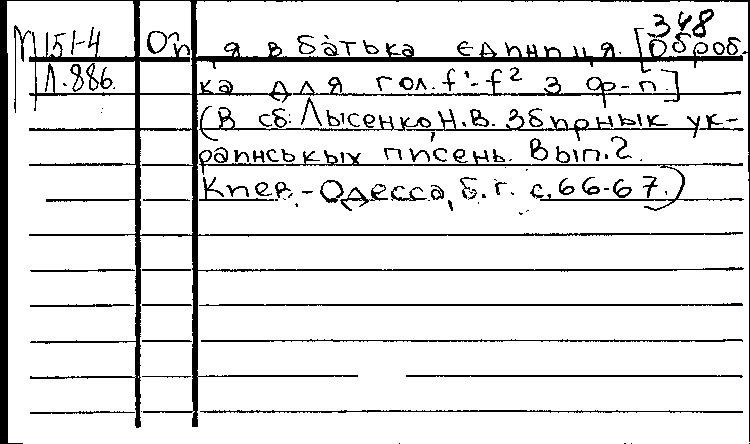 348
М 151-4 Оп я в батька єдиниця. [Оброб.
Л.886. ка для гол. f¹-f² з ф-п.]
(В сб. Лысенко, Н.В. Збирнык ук-
раинськых писень. Вып.2.
Киев.-Одесса, б.г. с.66-67.)